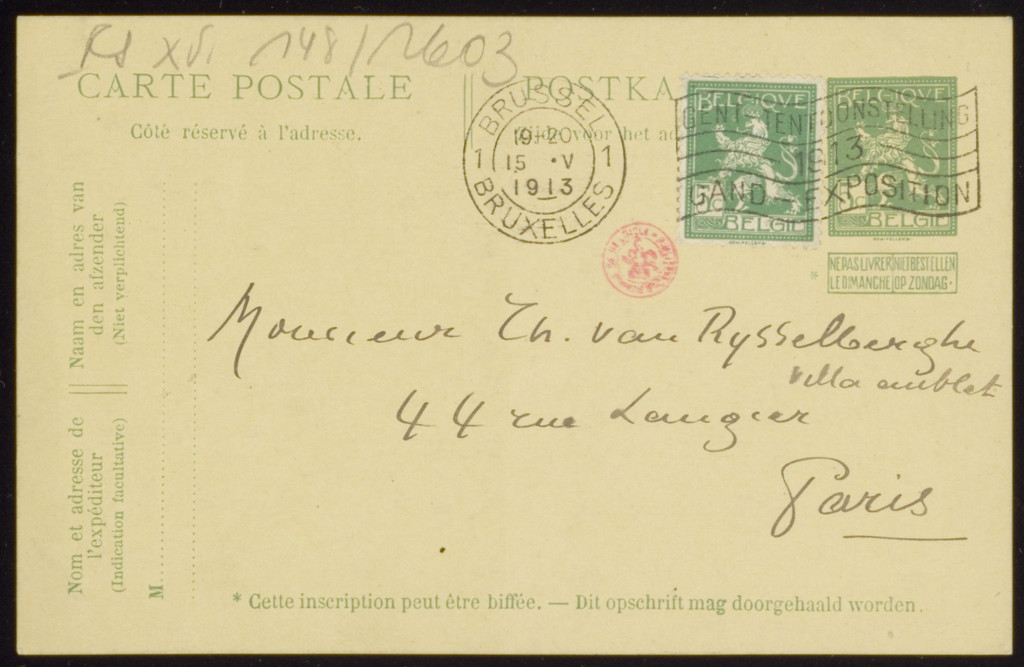 FS XVI 148/1603
CARTE POSTALE
POSTKA
Côté réservé à l'adresse.
Zijde voor het ad
BRUSSEL
19-20
1 15 V 1
1913
BRUXELLES
BELGIQUE
BELGIË
BELGIQUE
BELGIË
GENT TENTOONSTELLING
1913
GAND EXPOSITION
NE PAS LIVRER NIET BESTELLEN
LE DIMANCHE OP ZONDAG.
*
Monsieur Th. van Rysselberghe
villa aublet
44 rue Laugier
Paris
Naam en adres van
den afzender
(Niet verplichtend)
Nom et adresse de
l'expéditeur
(Indication facultative)
M
* Cette inscription peut être biffée. — Dit opschrift mag doorgehaald worden.